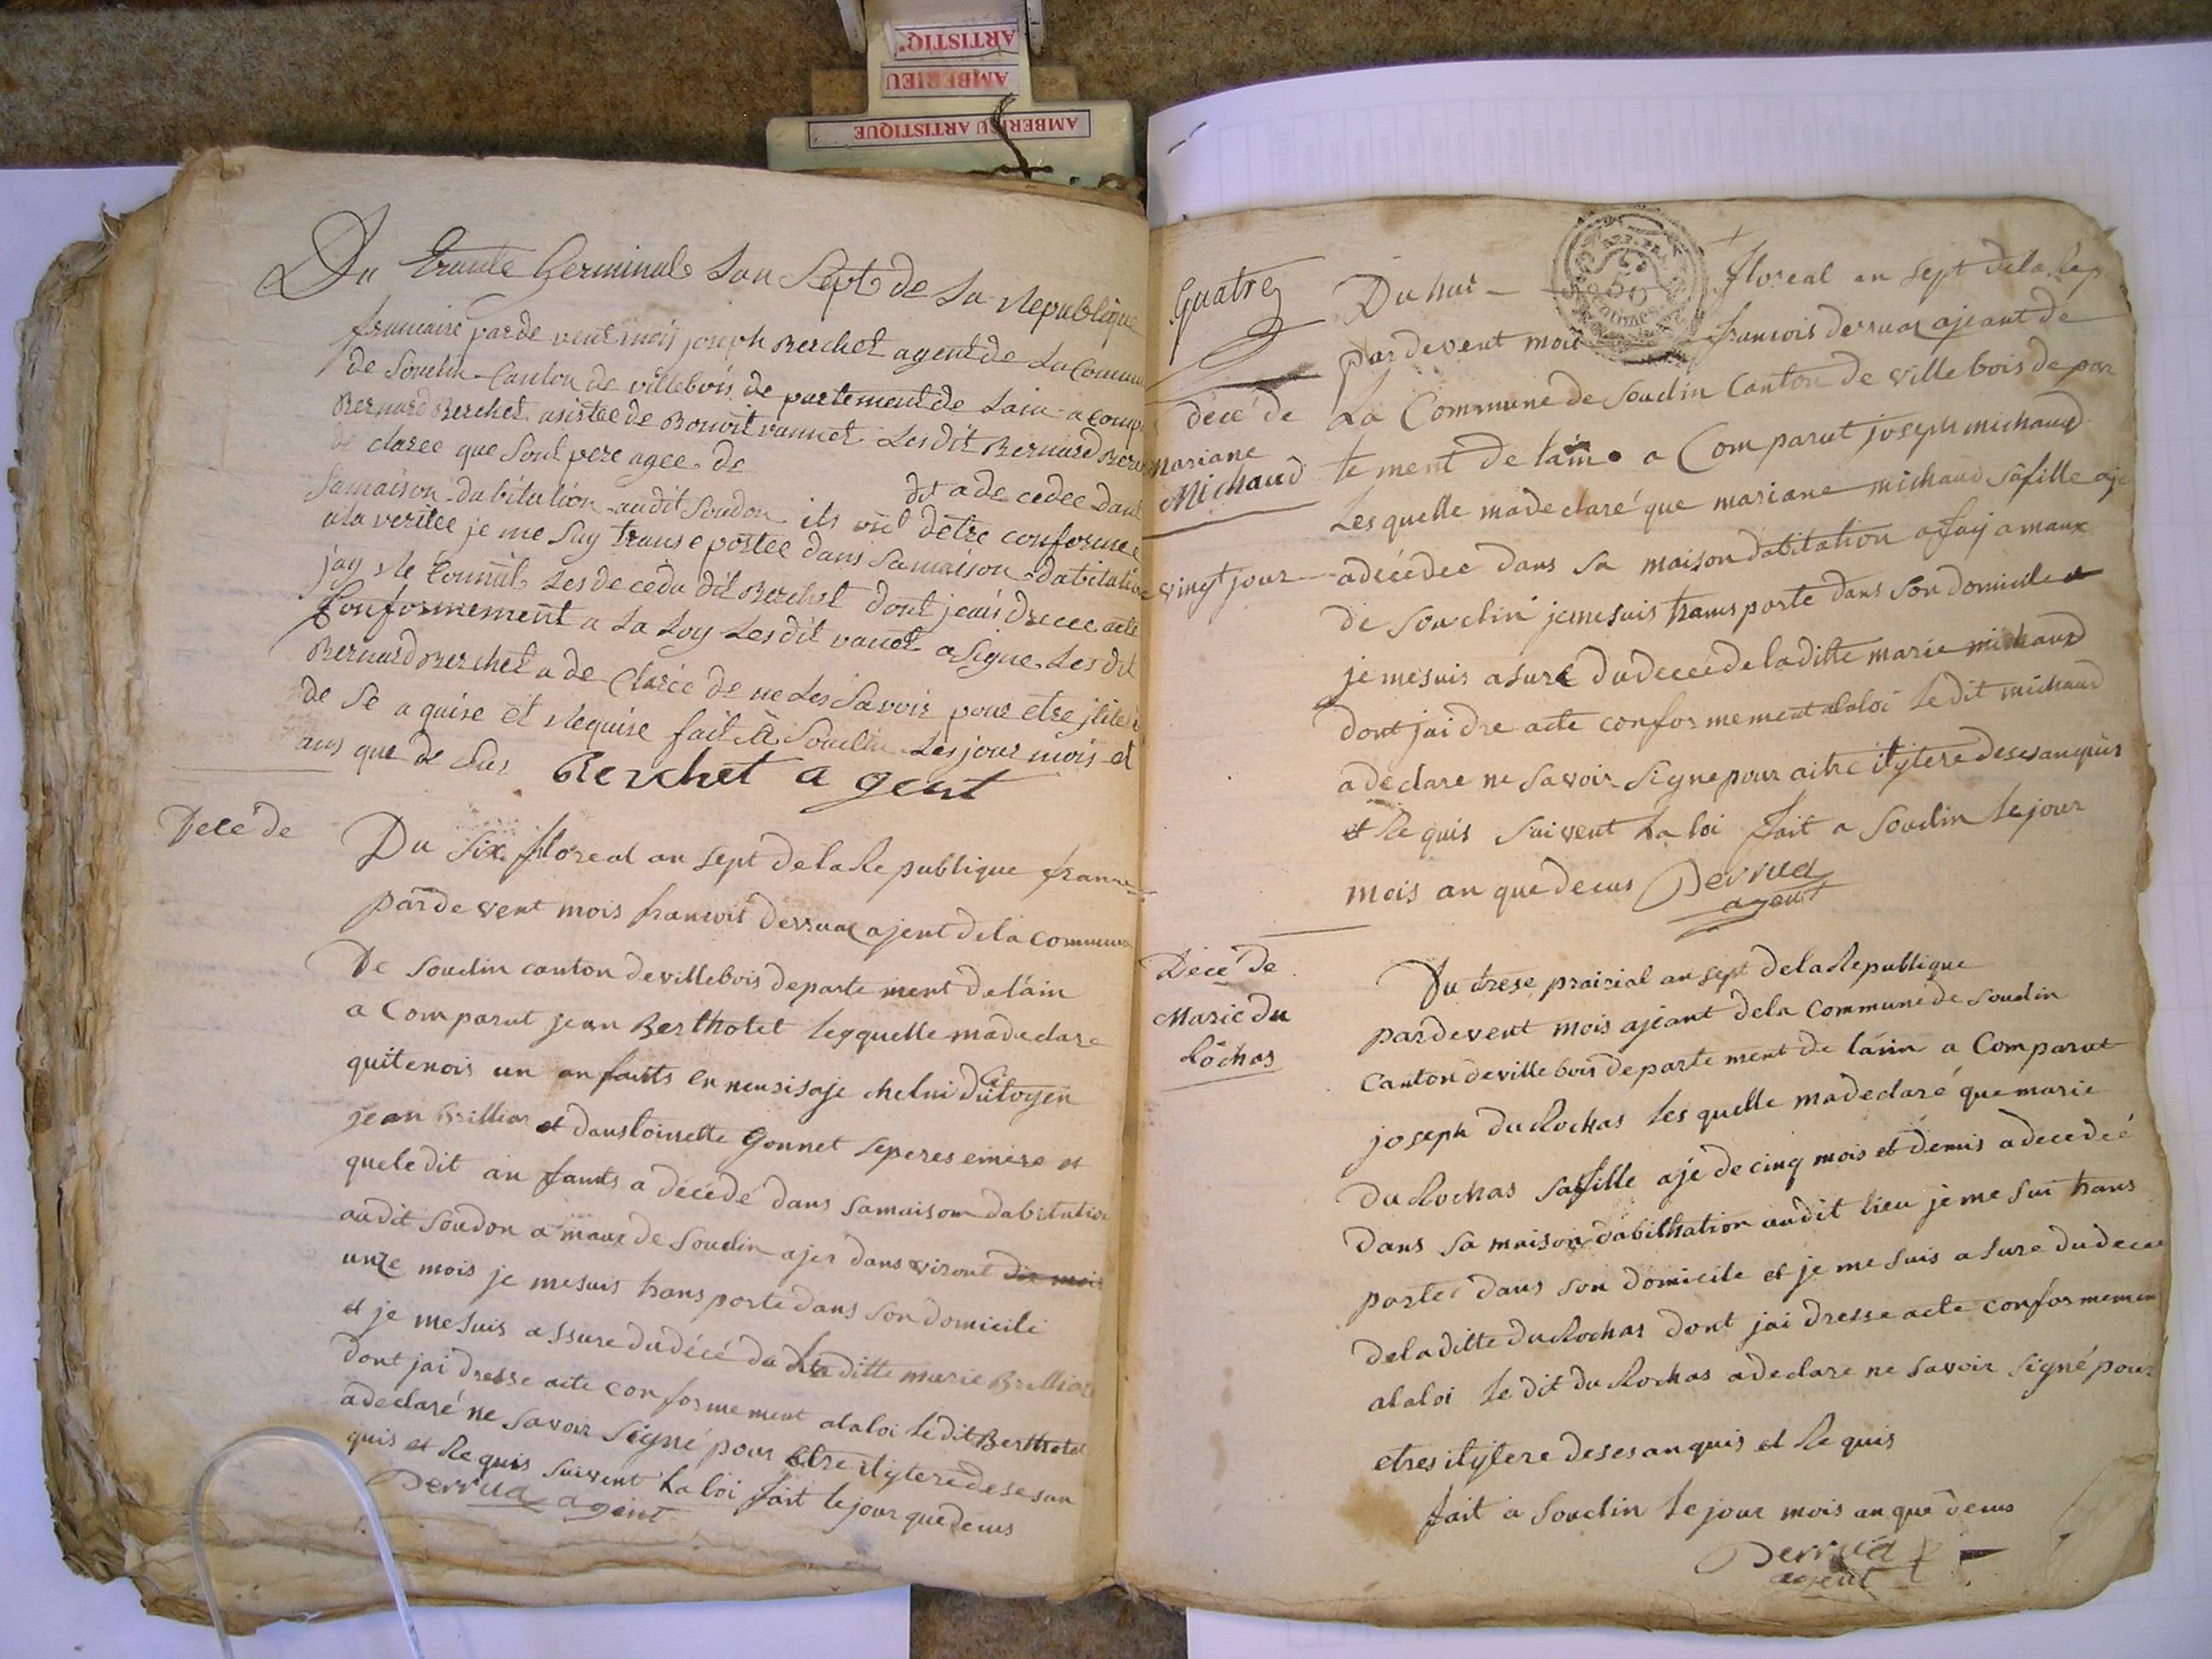 ARTISTIQ
AMBERIEU
AMBERIEU ARTISTIQUE
Du trante Germinal Lan Sept de La Republique
francaire parde vent mois joseph Berchet agent de La Commu
de Souclin Canton de villebois de partement de Lain a comp
Bernard Berchet asistee de Benoit vannet Lesdit Bernard Berc
de claree que Sont pere agee de
dit a de cedee dant
Samaison dabitation audit Soudon ils ont detre conformee
ala veritee je me Suy trans e postee dans Samaison dabitation
jay Re Connut Les de cedu dit Berchet dont jeais drecee acte
Conformement a La Loy Lesdit vanet a Signe Les dit
Bernard Berchet a de Claree de ne Les Savoir pour etre jtite
de Se a quise et Requise fait A Souclin Les jour mois et
ans que de Sus Berchet a gent
Decé de
Du six floreal an sept de la Re publique franc
parde vent mois francois derruaz ajent dela commune
De Souclin canton devillebois departe ment delain
a Comparut jean Berthotet lesquelle madeclare
quitenois un anfants en neusisaje chelui Du Citoyen
jean Brillier et dans toinette Gonnet leperes emere et
queledit an fants a décédé dans samaison dabitation
audit Soudon a maux de Souclin ajer dans viront dix mois
unze mois je mesuis trans porte dans Son domicile
et je mesuis assure dudécé du dit laditte marie Brillier
dont jai dresse acte con formement alaloi ledit Berthotet
a declaré ne Savoir Signé pour Etre itytere dese san
quis et Re quis suivent La loi fait le jour que decus
Derrua agent
Quatre
Du huit floreal an sept dela Rep
par devent moit francois derruaz ajeant de
La Commune de Souclin Canton de ville bois de par
te ment de lain a Com parut joseph michaud
Les quelle madeclaré que mariane michaud safille aje
décé de
mariane
Michaud
vingt jour adécédee dans Sa maison dabitation a fay a maux
de Souclin jemesuis trans porte dans Son domicile et
je mesuis asure Dudeceé dela ditte marie michaud
dont jai dre acte confor mement alaloi le dit michaud
a declare ne Savoir Signe pour aitre itytere desesanquis
et Re quis suivent La loi fait a Souclin le jour
mois an que decus Derrua
agent
Décé de
Marie du
Rochas
Du trese prairial an sept dela Republique
pardevent mois ajeant dela Commune de Souclin
Canton deville bois departe ment de lain a Comparut
joseph du Rochas Les quelle madeclaré que marie
du Rochas safille aje de cinq mois et demis adecedeé
dans sa maison dabithation audit lieu je me sui trans
porte dans son domicile et je me suis asure dudecee
deladitte du Rochas dont jai dresse acte conformemen
alaloi le dit du Rochas adeclare ne savoir signé pour
etres itytere desesanquis et Re quis
fait a Souclin le jour mois an que decus
Derrua
agent